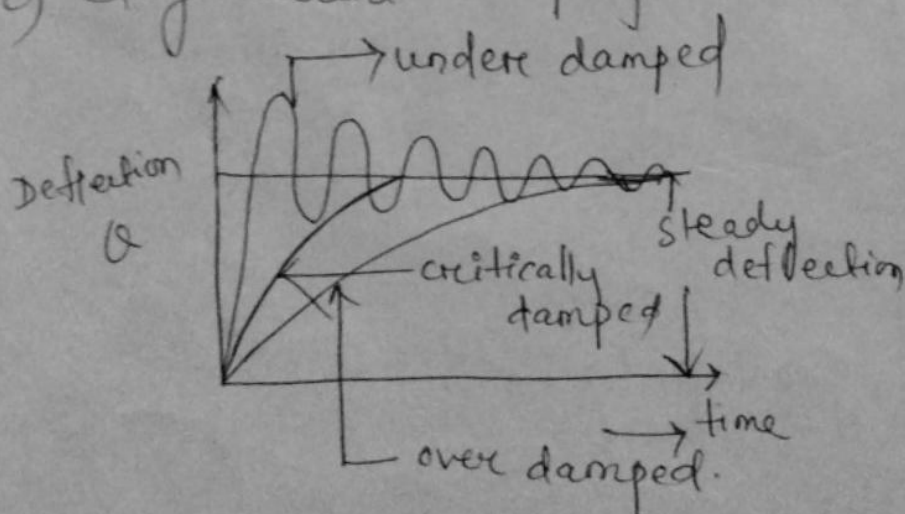 undere damped
Deflection
θ
steady
deflection
critically
damped
time
over damped.